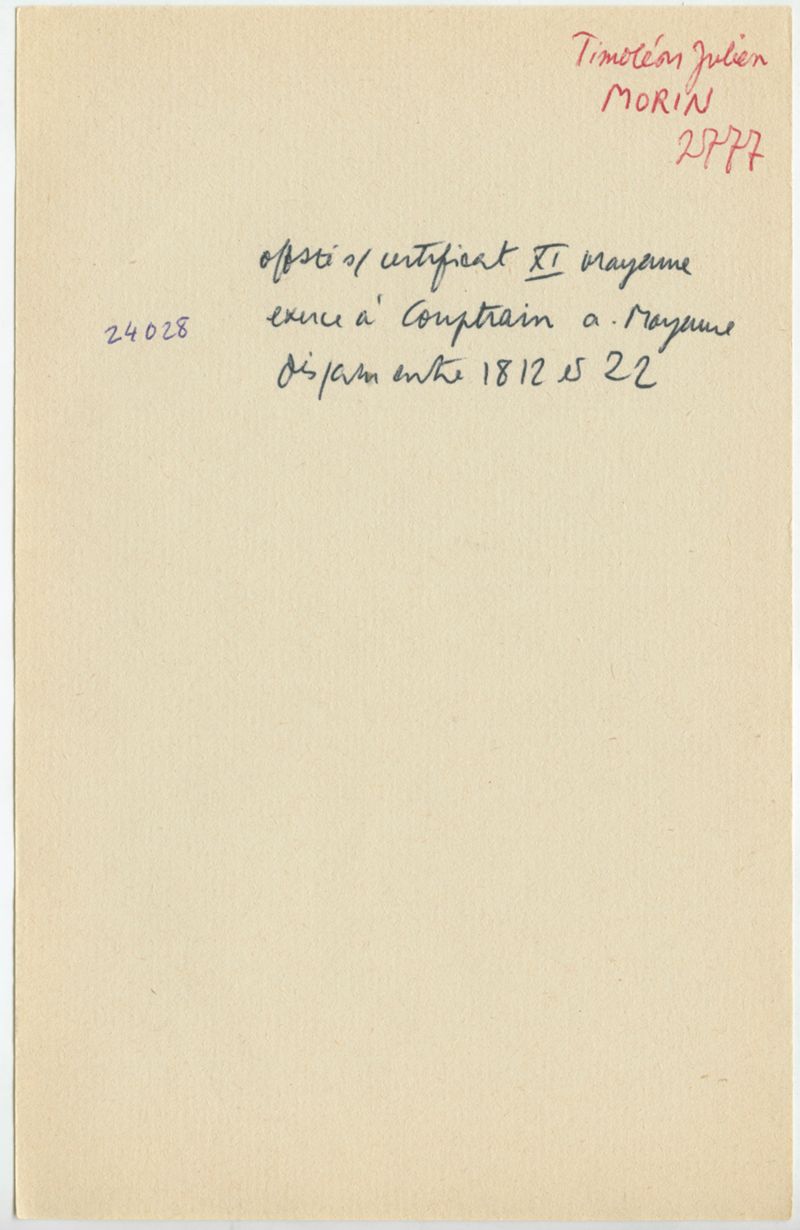 Timoléon Julien
MORIN
2777
s/ certificat XI Mayenne
24028
exerce à Couptrain a. Mayenne
entre 1812 et 22